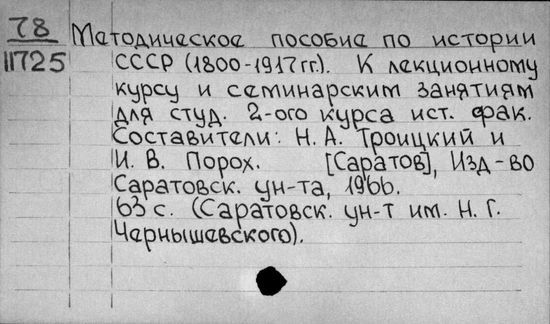 78
11725
Методическое пособие по истории
СССР (1800-1917 гг.). К лекционному
курсу и семинарским занятиям
для студ. 2-ого курса ист. фак.
Составители: Н. А. Троицкий и
И. В. Порох. [Саратов], Изд-во
Саратовск. ун-та, 1966.
63 с. (Саратовск. ун-т им. Н. Г.
Чернышевского).